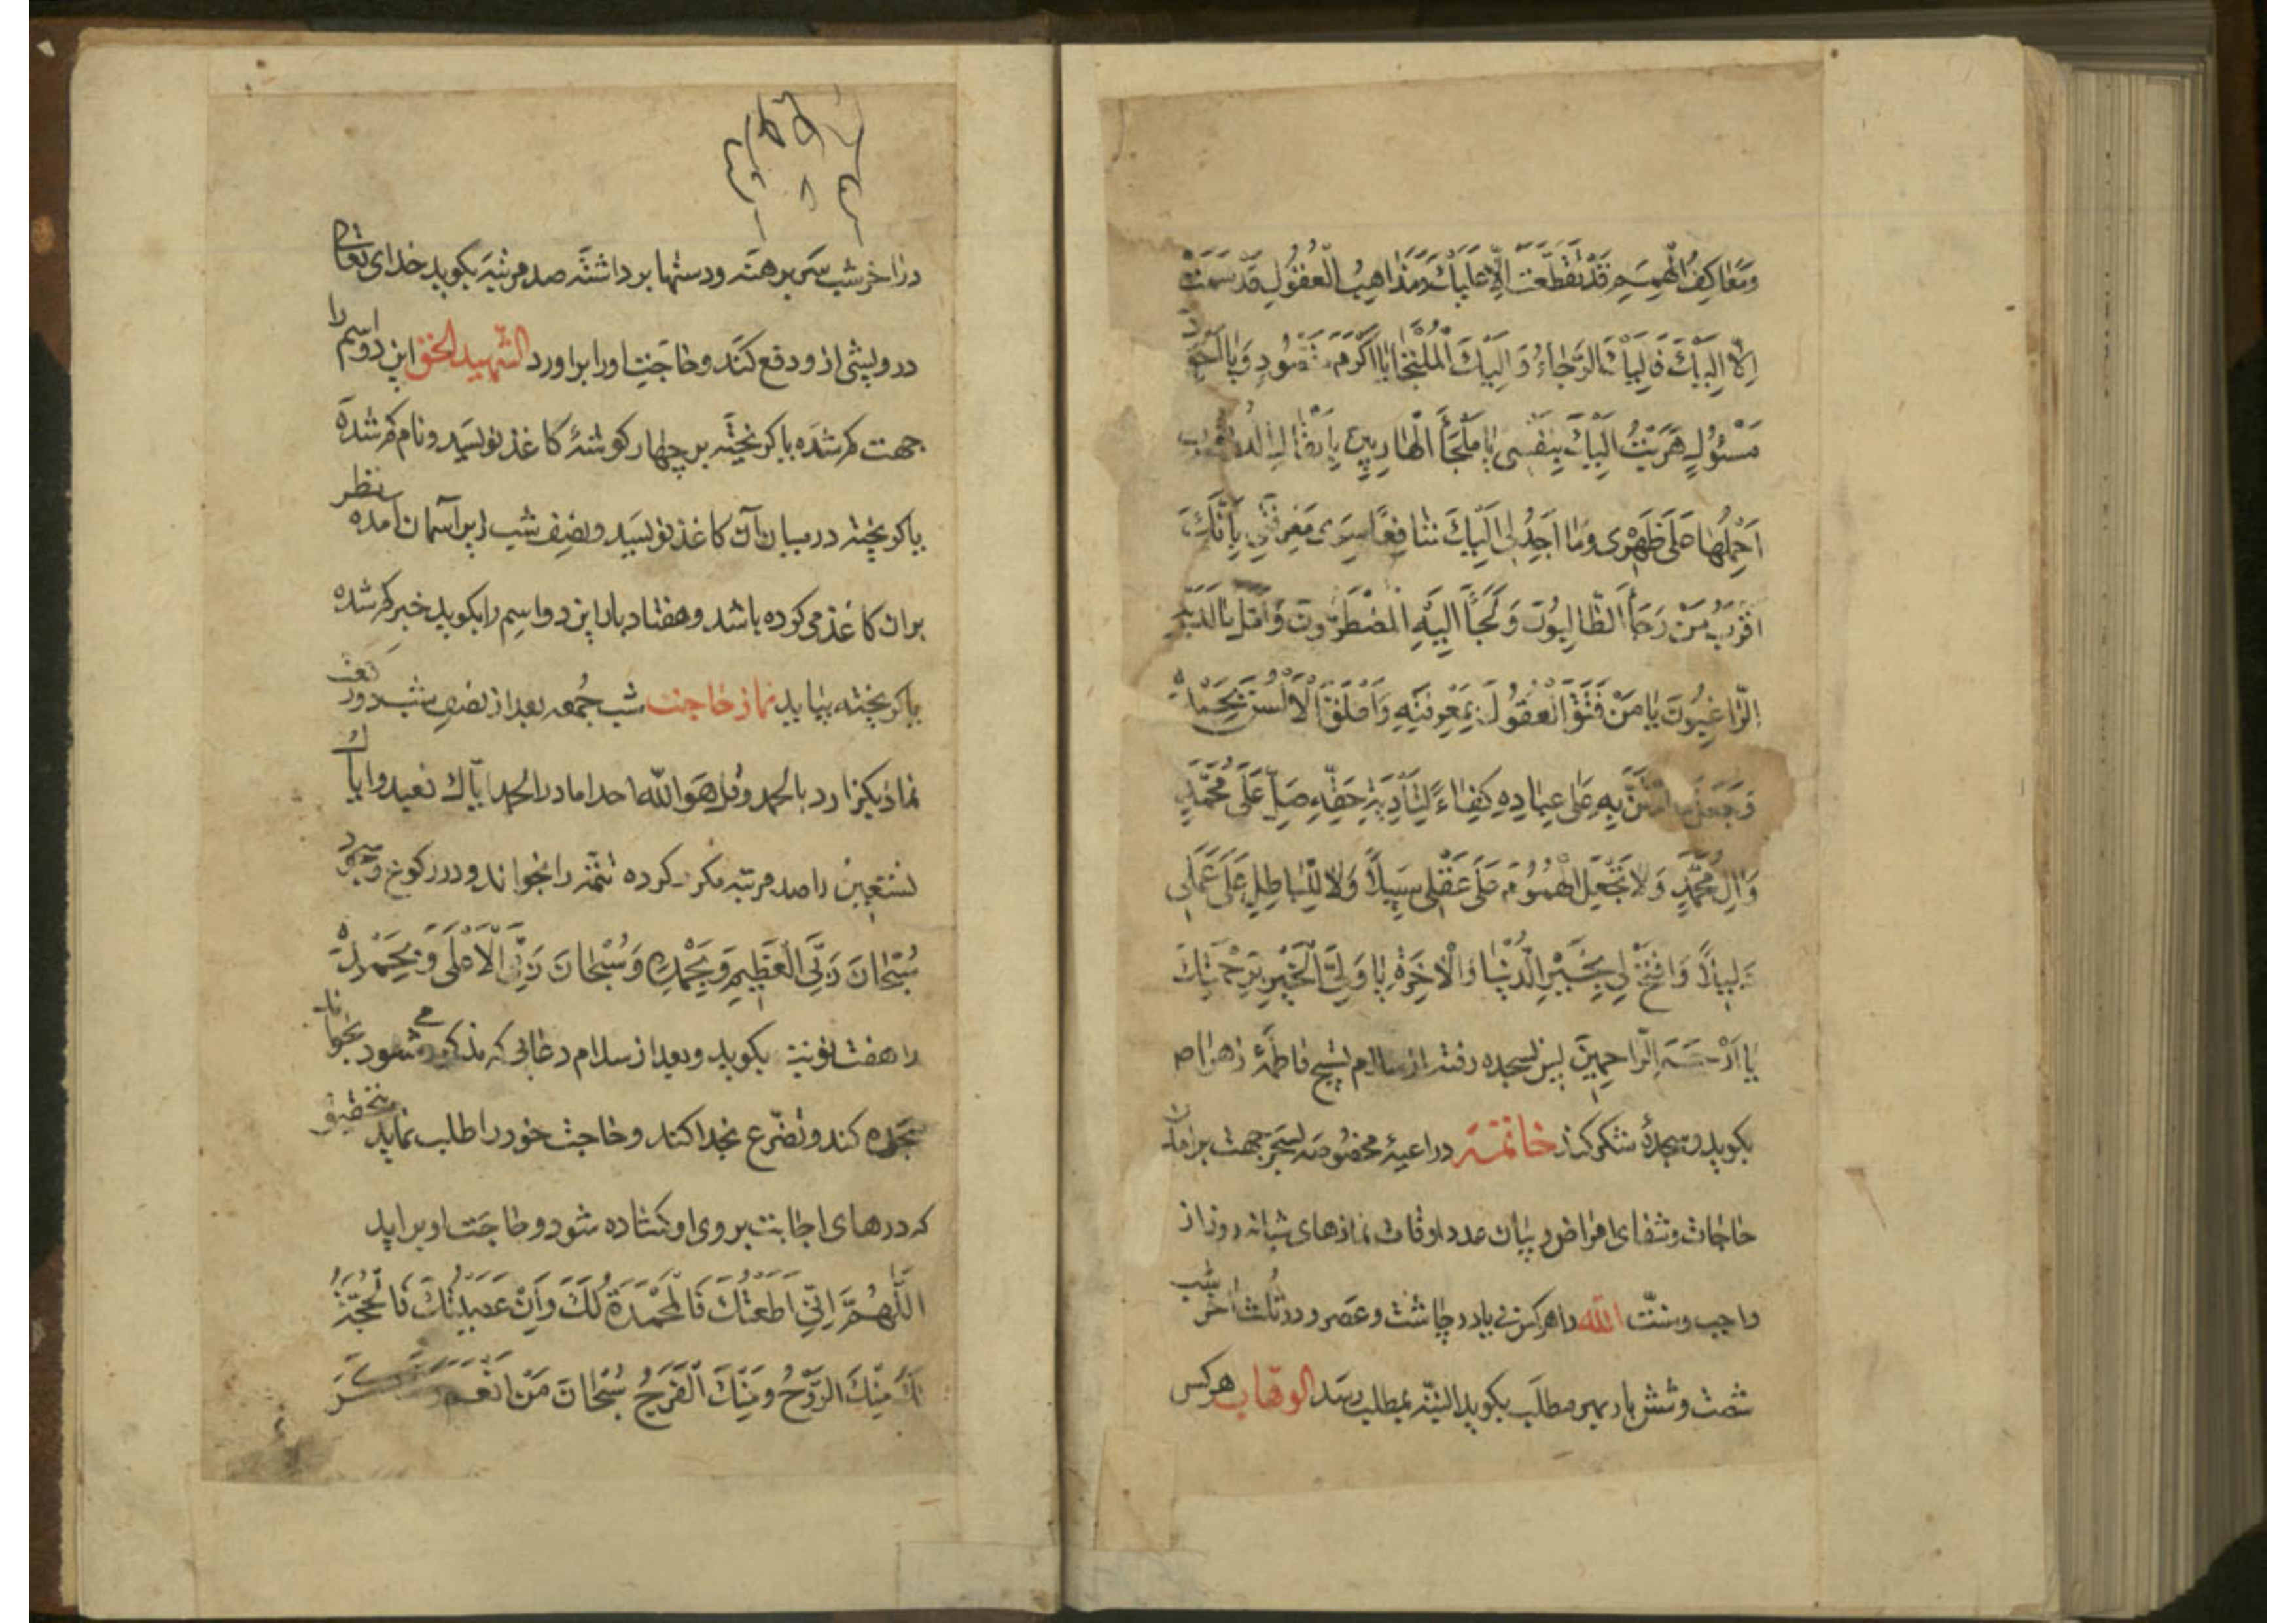 وَمَعَاكِفُ الْهِمَمِ قَدْ تَقَطَّعَتْ اِلَّا عَلَيْكَ وَمَذَاهِبُ الْعُقُولِ قَدْ سَمَتْ
اِلَّا اِلَيْكَ فَاِلَيْكَ الرَّجَاءُ وَ اِلَيْكَ الْمُلْتَجَا يَا اَكْرَمَ مَقْصُودٍ وَ يَا اَجْوَدَ
مَسْئُولٍ هَرَبْتُ اِلَيْكَ بِنَفْسِى يَا مَلْجَأَ الْهَارِبِينَ بِاَثْقَالِ الذُّنُوبِ
اَحْمِلُهَا عَلَى ظَهْرِى وَمَا اَجِدُ لِى اِلَيْكَ شَافِعًا سِوَى مَعْرِفَتِى بِاَنَّكَ
اَقْرَبُ مَنْ رَجَأَ الطَّالِبُونَ وَ لَجَأَ اِلَيْهِ الْمُضْطَرُّونَ وَ اَمَّلَ مَا لَدَيْهِ
الرَّاغِبُونَ يَا مَنْ فَتَقَ الْعُقُولَ بِمَعْرِفَتِهِ وَ اَطْلَقَ الْاَلْسُنَ بِحَمْدِهِ
وَجَعَلَ مَا امْتَنَّ بِهِ عَلَى عِبَادِهِ كِفَاءً لِتَأْدِيَةِ حَقِّهِ صَلِّ عَلَى مُحَمَّدٍ
وَ اٰلِ مُحَمَّدٍ وَ لَا تَجْعَلْ لِلْهُمُومِ عَلَى عَقْلِى سَبِيلًا وَلَا لِلْبَاطِلِ عَلَى عَمَلِى
دَلِيلًا وَ افْتَحْ لِى بِخَيْرِ الدُّنْيَا وَ الْاٰخِرَةِ يَا وَلِىَّ الْخَيْرِ بِرَحْمَتِكَ
يَا اَرْحَمَ الرَّاحِمِينَ پس بسجده رفته از سلام تسبیح فاطمۀ زهرا ص
بکوید و سجدۀ شکر کند خاتمته در ادعیۀ مخصوصه جهت برامدن
حاجات و شفای امراض و بیان عدد اوقات نمازهای شبانه روز از
واجب و سنّت الله را هر کس در چاشت و عصر و در ثلث اخر شب
شصت و شش بار بهر مطلب بکوید البتّه بمطلب رسد الوهّاب هر کس
در اخر شب سر برهنه و دستها برداشته صد مرتبه بکوید خدای تعالی
درویشی از و دفع کند و حاجت او را براورد الشهید الحق این دو اسم را
جهت کم شده یا کریخته بر چهار کوشۀ کاغذ نویسد و نام کم شده
یا کریخته در میان آن کاغذ نویسد و نصف شب زیر آسمان آمده نظر
بران کاغذ می کرده باشد و هفتاد بار این دو اسم را بکوید خبر کم شده
یا کریخته بیابد نماز حاجت شب جُمعه بعد از نصف شب دو رکعت
نماز بکزارد بالحمد و قل هو الله احد اما در الحمد ایّاک نعبد و ایاک
نستعین را صد مرتبه مکرر کرده تتمّه را بخواند و در رکوع و سجود
سُبْحَانَ رَبِّىَ الْعَظِيمِ وَ بِحَمْدِهِ وَ سُبْحَانَ رَبِّىَ الْاَعْلَى وَ بِحَمْدِهِ
را هفت نوبت بکوید و بعد از سلام دعائی که مذکور میشود بخواند
سجده کند و تضرّع بخدا کند و حاجت خود را طلب نماید بتحقیق
که درهای اجابت بروی او کشاده شود و حاجت او براید
اَللّٰهُمَّ اِنِّى اَطَعْتُكَ فَالْمَحْمَدَةُ لَكَ وَ اِنْ عَصَيْتُكَ فَالْحُجَّةُ
لَكَ مِنْكَ الرَّوْحُ وَ مِنْكَ الْفَرَجُ سُبْحَانَ مَنْ اَنْعَمَ